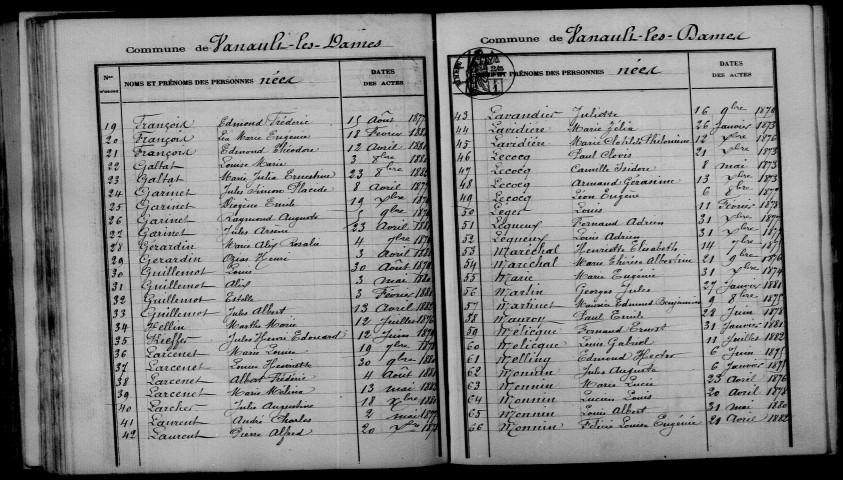 Commune de Vanault-les-Dames
Nos D'ORDRE NOMS ET PRÉNOMS DES PERSONNES nées DATES DES ACTES
19 François Edmond Fréderic 15 Août 1877
20 François Léa Marie Eugénie 18 Février
21 François Edmond Théodore 12 Avril
22 Galtat Louise Marie 3 8bre
23 Galtat Marie Julia Ernestine 23 8bre
24 Garinet Jules Simon Placide 8 Avril
25 Garinet Emile 19
26 Garinet Raymond Auguste 5 9bre
27 Garinet Jules Arsene 23 Avril
28 Gérardin Marie Alix Rosalie 4 9bre
29 Gérardin Henri 3 Avril
30 Guillemot Louis 30 Août
31 Guillemot Alix 3 mai
32 Guillemot Estelle 3 Février
33 Guillemot Jules Albert 13 Avril 1882
34 Hellin Marthe Marie 12 Juillet
35 Jules Henri Edouard 12 Juin
36 Larcenet Marie Louise 19
37 Larcenet Louise Henriette 30 9bre
38 Larcenet Albert Fréderic 4 Août
39 Larcenet Marie Mélina 13 mai
40 Larcher Julie Augustine 18 Xbre
41 Laurent André Charles 2 mai
42 Laurent Pierre Alfred 20 Xbre
Commune de Vanault-les-Dames
NOMS ET PRÉNOMS DES PERSONNES nées DATES DES ACTES
43 Lavandier Juliette 16 9bre
44 Lavidière Marie Zélia 26 Janvier 1873
45 Lavidière Marie Clotilde Philomène 12 Xbre
46 Lecocq Paul Clovis 21 Xbre 1873
47 Lecocq Camille Isidore 8 mai
48 Lecocq Armand Gérasime 13 Xbre
49 Lecocq Léon Eugène 6 8bre
50 Leger Louis 11 Février
51 Lequeux Fernand Adrien 31 Xbre
52 Lequeux Louis Adrien 31 Xbre
53 Maréchal Henriette Elisabeth 14 9bre
54 Maréchal Marie Thérèse Albertine 21 9bre 1876
55 Marie Marie Eugénie 31 Xbre 1874
56 Martin Georges Jules 27 Janvier 1881
57 Martinet Maurice Edmond Benjamin 9 8bre 1875
58 Mauroy Paul Emile 22 Juin 1878
59 Mélicque Fernand Ernest 31 Janvier 1881
60 Mélicque Louis Gabriel 11 Juillet 1882
61 Melling Edmond Hector 6 Juin
62 Monnin Jules Auguste 6 Janvier
63 Monnin Marie Lucie 23 Avril 1876
64 Monnin Lucien Louis 20 Avril 1878
65 Monnin Louis Albert 31 mai 1880
66 Monnin Félicie Louise Eugénie 29 Avril 1882